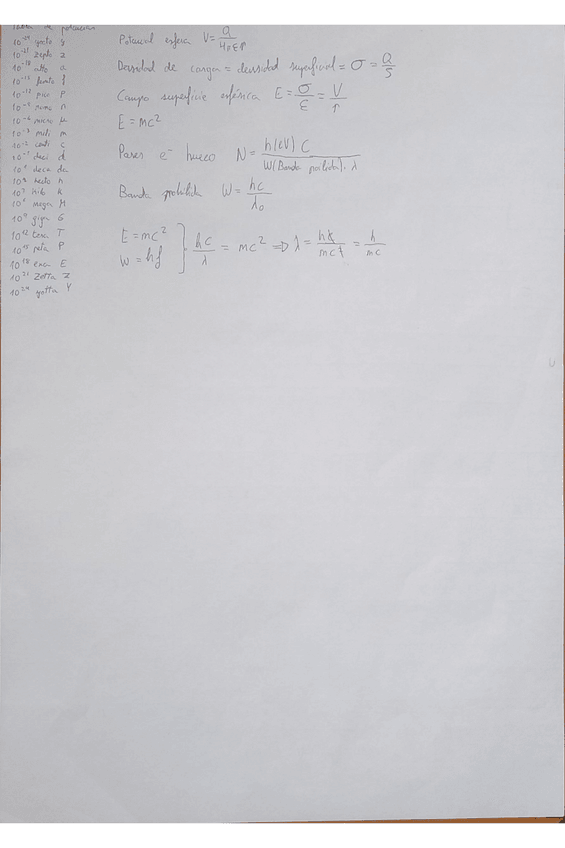 Tabla de potencias
10⁻²⁴ yocto y
10⁻²¹ zepto z
10⁻¹⁸ atto a
10⁻¹⁵ femto f
10⁻¹² pico p
10⁻⁹ nano n
10⁻⁶ micro μ
10⁻³ mili m
10⁻² centi c
10⁻¹ deci d
10¹ deca da
10² hecto h
10³ kilo k
10⁶ mega M
10⁹ giga G
10¹² tera T
10¹⁵ peta P
10¹⁸ exa E
10²¹ zetta Z
10²⁴ yotta Y
Potencial esfera V = Q / 4πεr
Densidad de carga = densidad superficial = σ = Q/S
Campo superficie esférica E = σ/ε = V/r
E = mc²
Pares e⁻ hueco N = h(eV) C / W(Banda prohibida) · λ
Banda prohibida W = hc / λ₀
E = mc²
W = hf
} hc/λ = mc² ⇒ λ = hc/mc² = h/mc